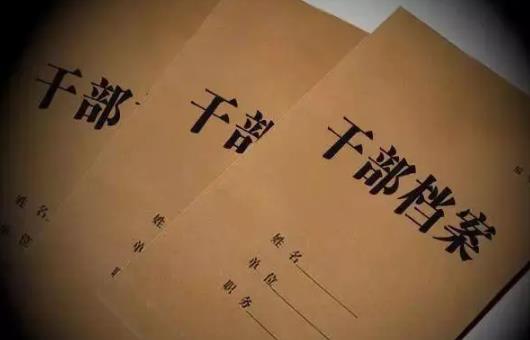 干部
姓名
单位
干部
姓
单
职
干部档案
姓名
单位
职务
编